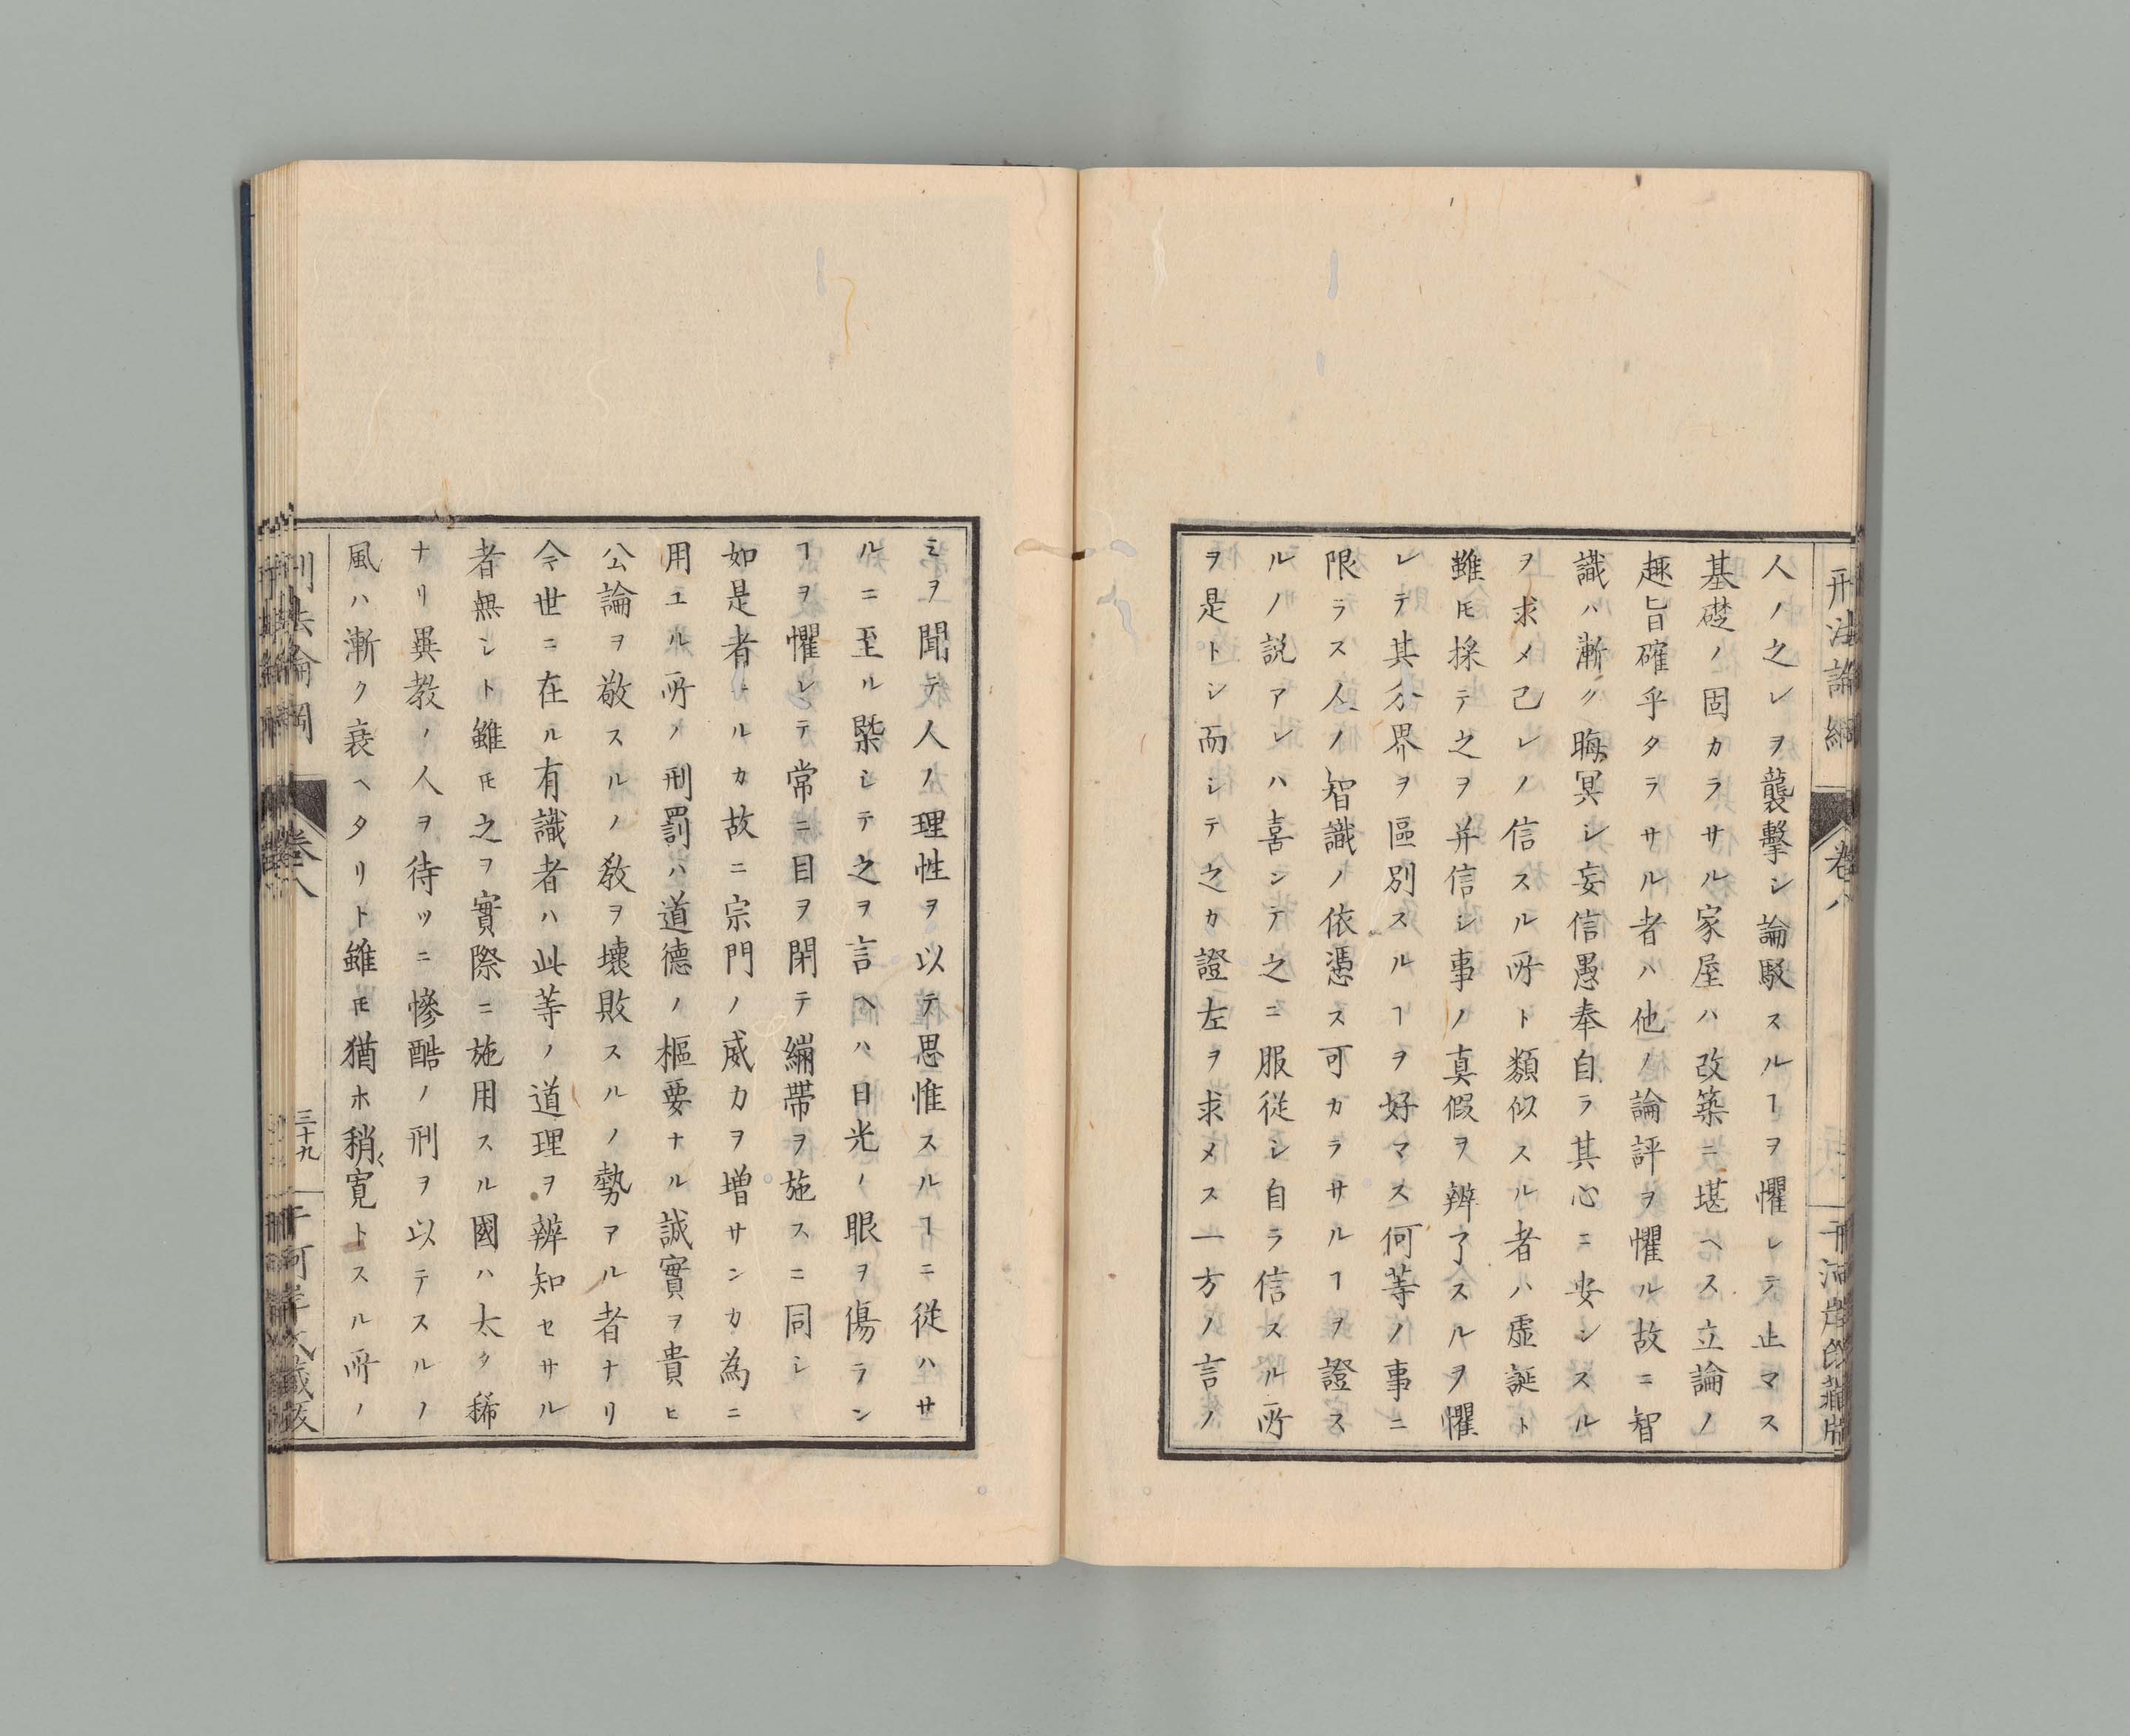 刑法論綱
卷八
人ノ之レヲ襲擊シ論駁スルヿヲ懼レテ止マス
基礎ノ固カラサル家屋ハ改築ニ堪ヘス立論ノ
趣旨確乎タラサル者ハ他ノ論評ヲ懼ル故ニ智
識ハ漸ク晦冥シ妄信愚奉自ラ其心ニ安シスル
ヲ求メ己レノ信スル所ト類似スル者ハ虛誕ト
雖𪜈採テ之ヲ并信シ事ノ真假ヲ辨了スルヲ懼
レテ其分界ヲ區別スルヿヲ好マス何等ノ事ニ
限ラス人ノ智識ノ依憑ス可カラサルヿヲ證ス
ルノ説アレハ喜シテ之ニ服從シ自ラ信スル所
ヲ是トシ而シテ之カ證左ヲ求メス一方ノ言ノ
ミヲ聞テ人ノ理性ヲ以テ思惟スルヿニ從ハサ
ルニ至ル槩シテ之ヲ言ヘハ日光ノ眼ヲ傷ラン
ヿヲ懼レテ常ニ目ヲ閉テ繃帶ヲ施スニ同シ
如是者ナルカ故ニ宗門ノ威力ヲ増サンカ為ニ
用ユル所ノ刑罰ハ道德ノ樞要ナル誠實ヲ貴ヒ
公論ヲ敬スルノ教ヲ壞敗スルノ勢アル者ナリ
今世ニ在ル有識者ハ此等ノ道理ヲ辨知セサル
者無シト雖𪜈之ヲ實際ニ施用スル國ハ太タ稀
ナリ異教ノ人ヲ待ツニ慘酷ノ刑ヲ以テスルノ
風ハ漸ク衰ヘタリト雖𪜈猶ホ稍〻寛トスル所ノ
刑法論綱
卷八
三十九